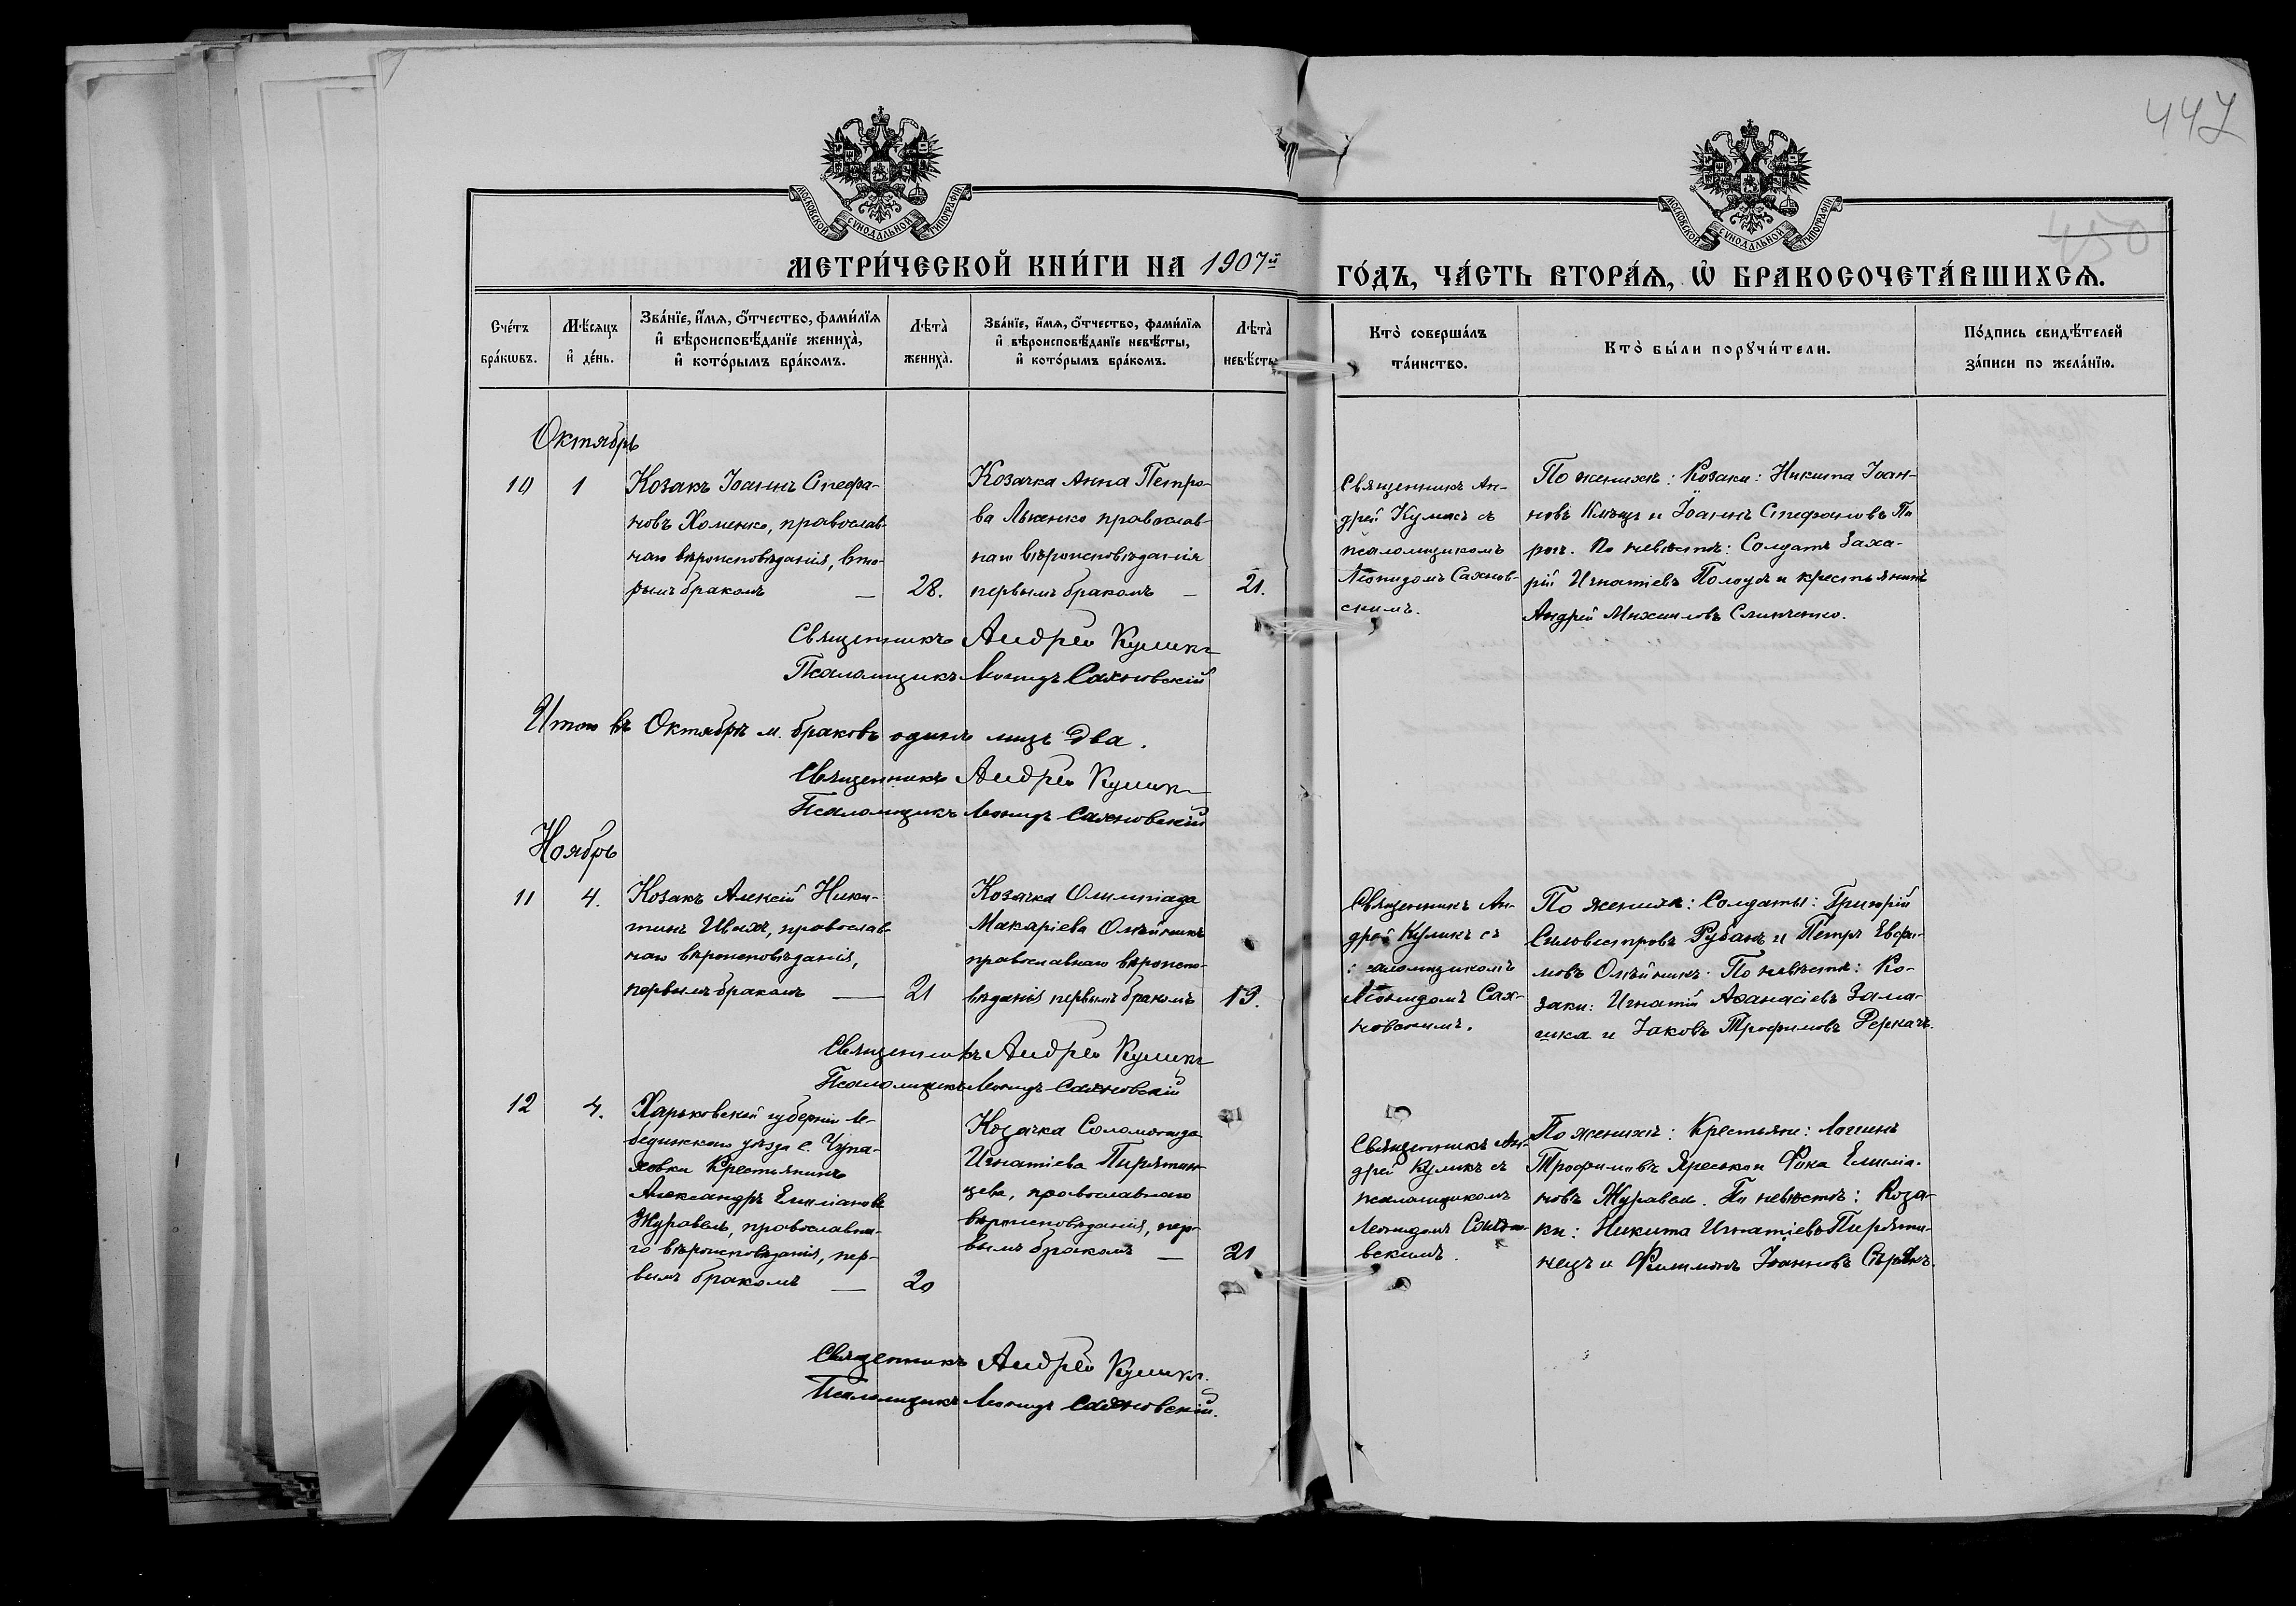 447
450
МОСКОВСКОЙ СУНОДАЛЬНОЙ ТИПОГРАФІИ
МОСКОВСКОЙ СУНОДАЛЬНОЙ ТИПОГРАФІИ
МЕТРИ́ЧЕСКОЙ КНИ́ГИ НА 1907й
ГО́ДЪ, ЧА́СТЬ ВТОРА́Ѧ, Ѡ҆ БРАКОСОЧЕТА́ВШИХСѦ.
Сче́тъ
бра́кѡвъ.
Мѣ́сяцъ
и҆ де́нь.
Зва́нїе, и҆́мѧ, ѻ҆́тчество, фами́лїѧ
и҆ вѣроисповѣ́данїе жениха̀,
и҆ кото́рымъ бра́комъ.
Лѣта̀
жениха̀.
Зва́нїе, и҆́мѧ, ѻ҆́тчество, фами́лїѧ
и҆ вѣроисповѣ́данїе невѣ́сты,
и҆ кото́рымъ бра́комъ.
Лѣта̀
невѣ́сты
Кто̀ соверша́лъ
та́инство.
Кто̀ бы́ли порꙋчи́тели.
По́дпись свидѣ́телей
за́писи по жела́нїю.
Октябрь
10
1
Козакъ Іоаннъ Стефа-
новъ Хоменко, православ-
наго вѣроисповѣданія, вто-
рымъ бракомъ —
28.
Козачка Анна Петро-
ва православ-
наго вѣроисповѣданія
первымъ бракомъ —
21.
Священникъ Ан-
дрей Куликъ съ
псаломщикомъ
Леонидомъ Сахнов-
скимъ.
По женихѣ: Козаки: Никита Іоан-
новъ и Іоаннъ Стефановъ
По невѣстѣ: Солдатъ Заха-
рій Игнатіевъ и крестьянинъ
Андрей Михаиловъ Слинченко.
Священникъ Андрей Куликъ
Псаломщикъ Леонидъ Сахновскій
Итого въ Октябрѣ м. браковъ одинъ лицъ два.
Священникъ Андрей Куликъ
Псаломщикъ Леонидъ Сахновскій
Ноябрь
11
4.
Козакъ Алексій Ники-
тинъ Ивахъ, православ-
наго вѣроисповѣданія,
первымъ бракомъ —
21
Козачка Олимпіада
Макаріева Олѣйникъ
православнаго вѣроиспо-
вѣданія первымъ бракомъ
19.
Священникъ Ан-
дрей Куликъ съ
псаломщикомъ
Леонидомъ Сах-
новскимъ.
По женихѣ: Солдаты: Григорій
Силовестровъ Рубанъ и Петръ Евфи-
мовъ Олѣйникъ. По невѣстѣ: Ко-
заки: Игнатій Аѳанасіевъ Зама-
шка и Іаковъ Трофимовъ Деркачъ.
Священникъ Андрей Куликъ
Псаломщикъ Леонидъ Сахновскій
12
4.
Харьковской губерніи Ле-
бединскаго уѣзда с. Чупа-
ховки Крестьянинъ
Александръ Емиліановъ
Журавель, православна-
го вѣроисповѣданія, пер-
вымъ бракомъ —
20
Козачка Соломонида
Игнатіева Пирятин-
цева, православнаго
вѣроисповѣданія, пер-
вымъ бракомъ —
21
Священникъ Ан-
дрей Куликъ съ
псаломщикомъ
Леонидомъ Сахно-
вскимъ.
По женихѣ: Крестьяне: Логинъ
Трофимовъ Яресько и Фока Емиліа-
новъ Журавель. По невѣстѣ: Коза-
ки: Никита Игнатіевъ Пиряти-
нецъ и Филимонъ Іоанновъ Сѣрякъ.
Священникъ Андрей Куликъ.
Псаломщикъ Леонидъ Сахновскій.